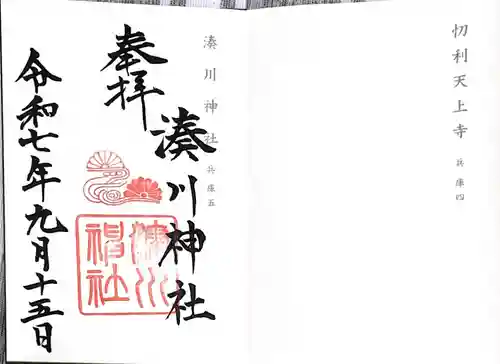 忉利天上寺 兵庫四
湊川神社 兵庫五
奉拝
湊川神社
令和七年九月十五日
湊川
神社